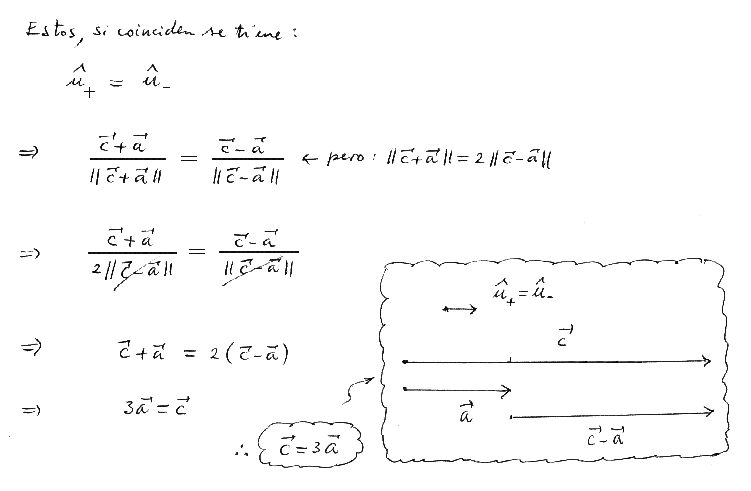 Estos, si coinciden se tiene:
û₊ = û₋
⇒ (c⃗+a⃗)/‖c⃗+a⃗‖ = (c⃗-a⃗)/‖c⃗-a⃗‖ ← pero: ‖c⃗+a⃗‖=2‖c⃗-a⃗‖
⇒ (c⃗+a⃗)/(2‖c⃗-a⃗‖) = (c⃗-a⃗)/‖c⃗-a⃗‖
⇒ c⃗+a⃗ = 2(c⃗-a⃗)
⇒ 3a⃗ = c⃗
∴ c⃗=3a⃗
û₊=û₋
c⃗
a⃗
c⃗-a⃗